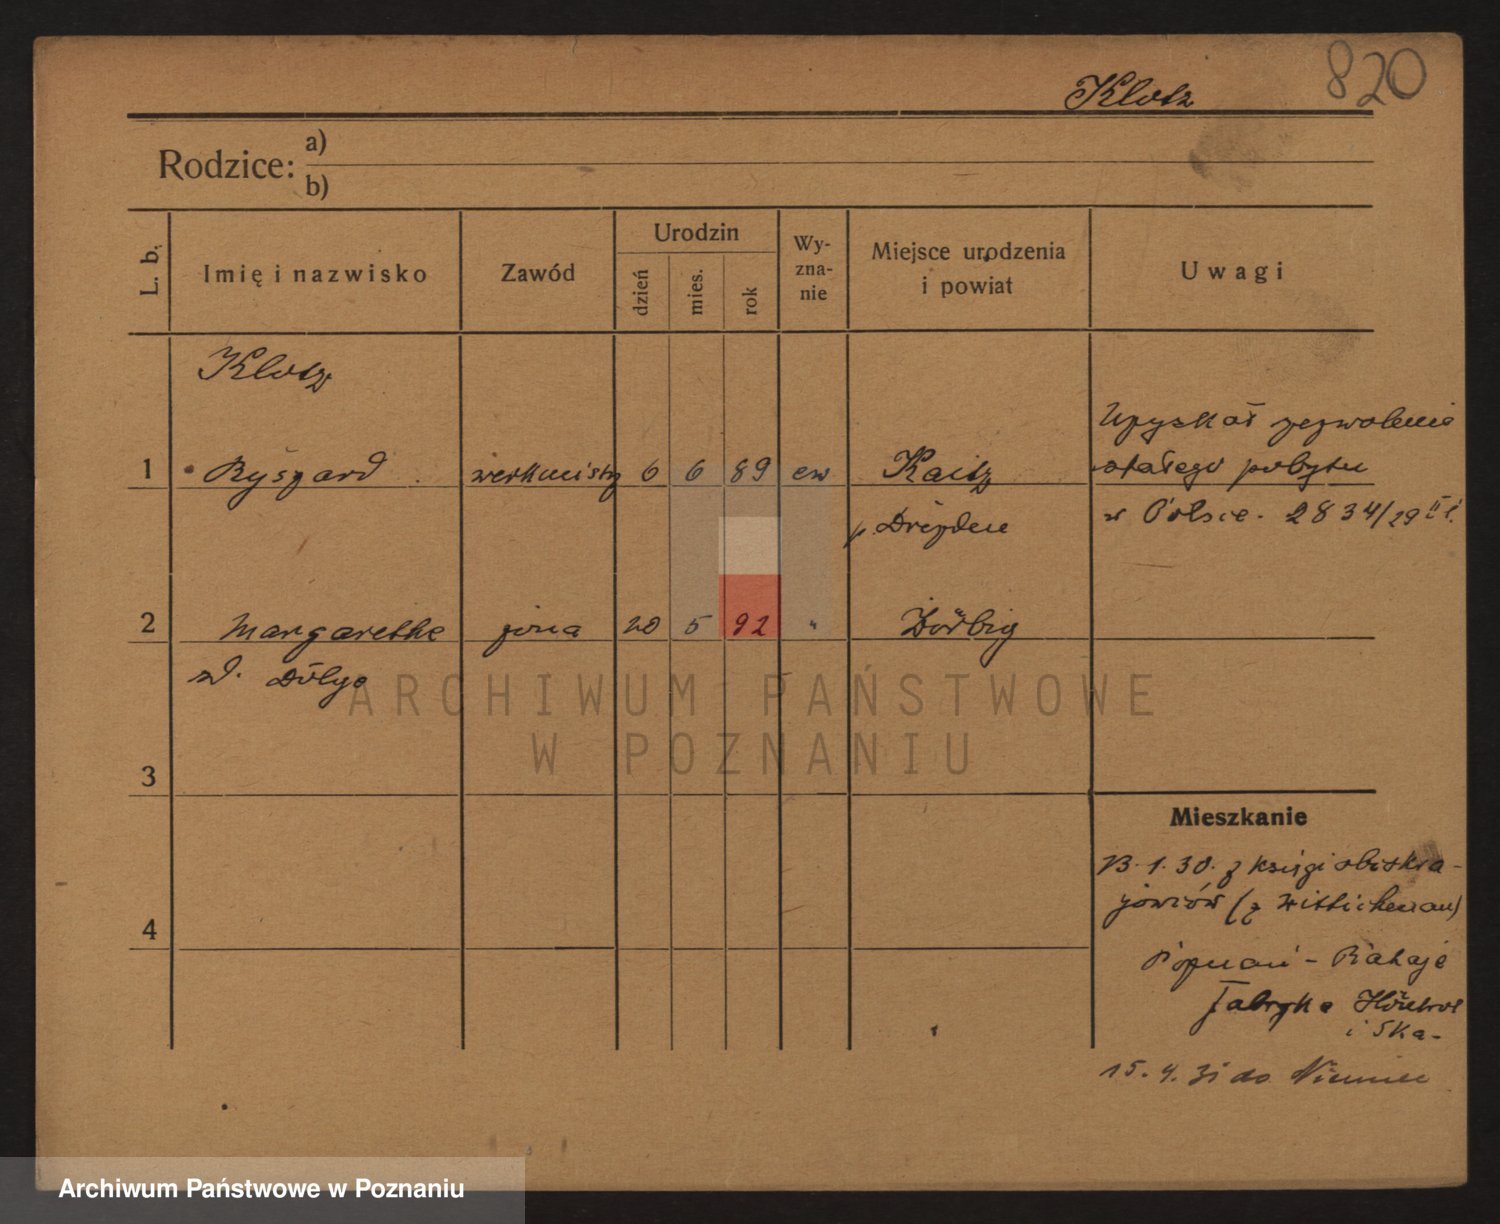 Klotz
820
Rodzice:
a)
b)
L. b.
Imię i nazwisko
Zawód
Urodzin
dzień
mies.
rok
Wy-
zna-
nie
Miejsce urodzenia
i powiat
Uwagi
Klotz
1 Ryszard werkmistrz 6 6 89 ew Kaitz
p. Drezden
Uzyskał zezwolenie
stałego pobytu
w Polsce. 2834/29 II
2 Margarethe żona 20 5 92 " Zörbig
zd.
3
4
Mieszkanie
13.1.30. z księgi obcokra-
jowców (z Wittichenau)
Poznań - Rataje
Fabryka
i Ska-
15.4.31 do Niemiec
ARCHIWUM PAŃSTWOWE
W POZNANIU
Archiwum Państwowe w Poznaniu